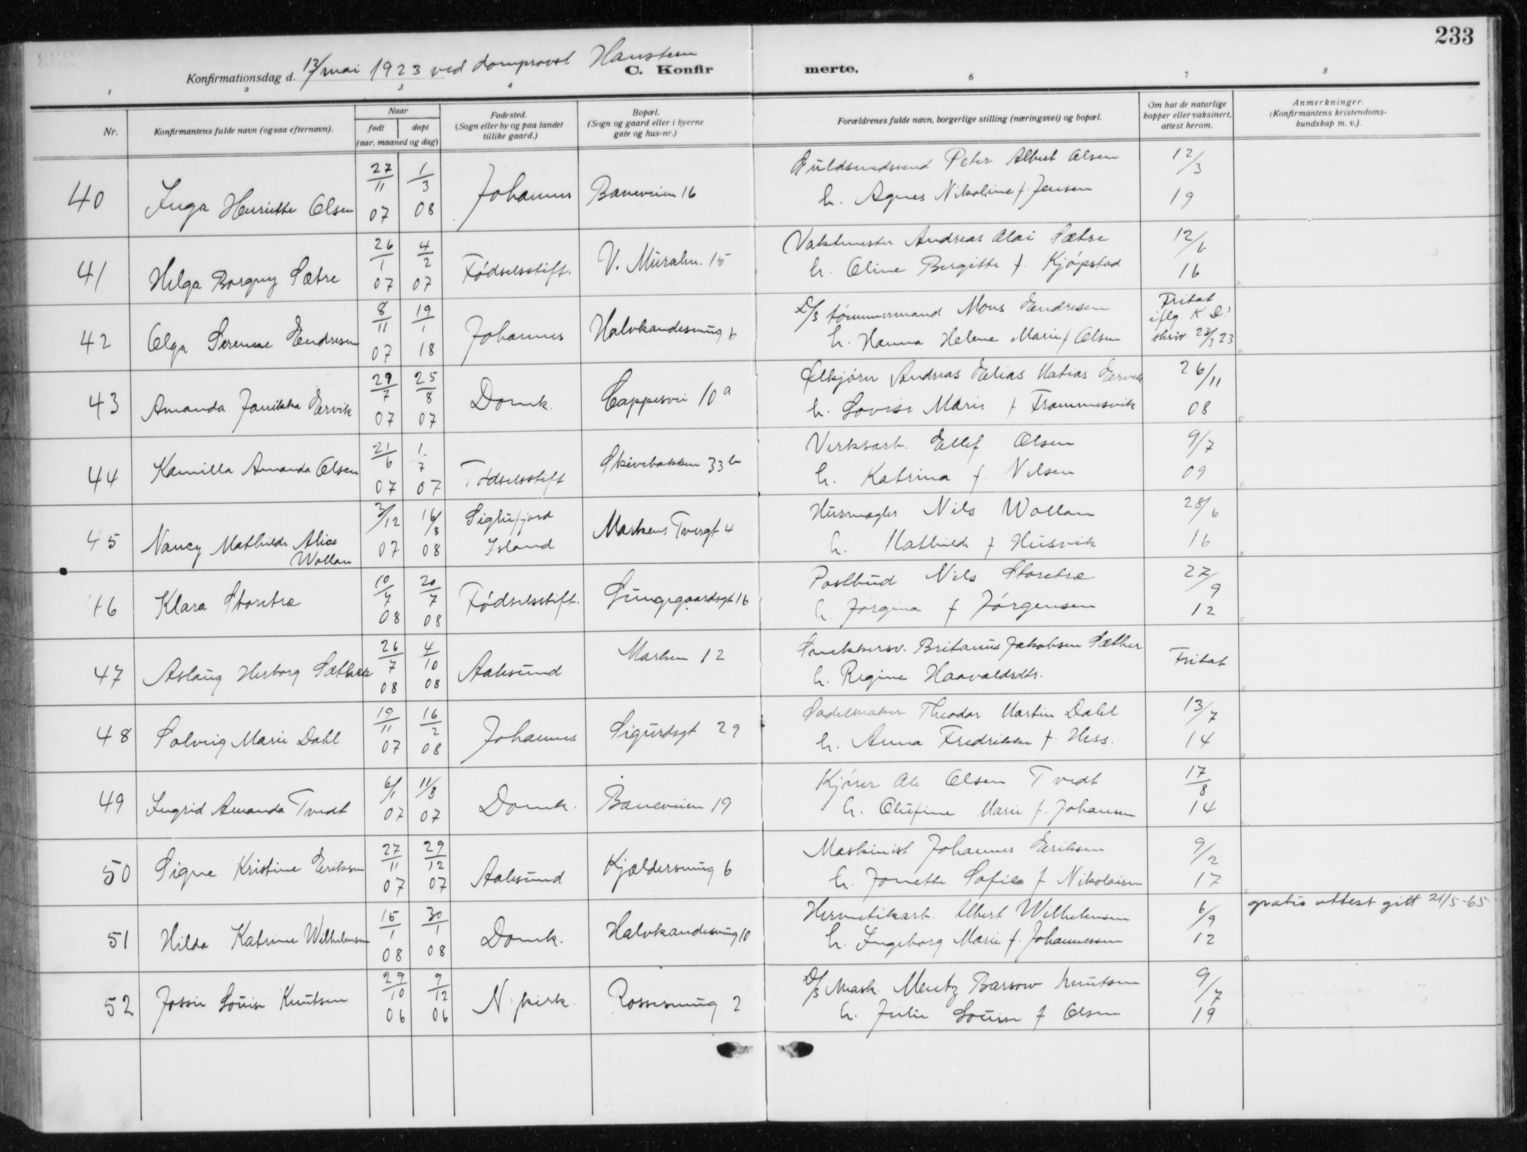 233
Konfirmationsdag d. 13/mai 1923 ved domprovst Hansteen
C. Konfirmerte.
1 2 3 4 6 7 8
Nr.
Konfirmantens fulde navn (ogsaa efternavn).
Naar
født døpt
(aar, maaned og dag)
Fødested.
(Sogn eller by og paa landet
tillike gaard.)
Bopæl.
(Sogn og gaard eller i byerne
gate og hus-nr.)
Forældrenes fulde navn, borgerlige stilling (næringsvei) og bopæl.
Om hat de naturlige
kopper eller vaksinert,
attest herom.
Anmerkninger.
(Konfirmantens kristendoms-
kundskap m. v.).
40 Inga Henriette Olsen 27/11 07 1/3 08 Johannes Baneveien 16
Guldsmedsvend Peter Albert Olsen
h. Agnes Nikoline f. Jensen 12/3 19
41 Helga Borgny Sætre 26/1 07 4/2 07 Fødselsstift. V. Muralm. 15
Vaktmester Andreas Olai Sætre
h. Oline Bergitte f. Kjøpstad 12/6 16
42 Olga Serense Endresen 8/11 07 19/1 18 Johannes Halvkandesmug 6
D/S tømmermand Mons Endresen
h. Hanna Helene Marie f Olsen
Fritat
iflg K D:
skriv. 23/3 23
43 Amanda Janikka Ervik 29/7 07 25/8 07 Domk. Cappesvei 10 a
Ølkjører Andreas Elias Matias Ervik
h. Lovise Marie f Frammesvik 26/11 08
44 Kamilla Amanda Olsen 21/6 07 1/7 07 Fødselsstift Skivebakken 33 b
Verksarb. Ellef Olsen
h. Katrina f. Nilsen 9/7 09
45 Nancy Mathilde Alice
Wollan 3/12 07 16/8 08 Siglufjord
Island Markens Tvergt 4
Husmægler Nils Wollan
h. Mathilde f Husvik 28/6 16
46 Klara Storetræ 10/4 08 20/7 08 Fødselsstift. Lungegaardsgt 16
Postbud Nils Storetræ
h. Jørgina f Jørgensen 27/9 12
47 Aslaug Herborg Sæther 26/7 08 4/10 08 Aalesund Marken 12
Snekkersv. Britanus Jakobsen Sæther
h. Regine Haavaldsdtr. Fritat
48 Solveig Marie Dahl 19/11 07 16/2 08 Johannes Sigurdsgt 29
Sadelmaker Theodor Martin Dahl
h. Anna Fredrikke f. Hess. 13/7 14
49 Ingrid Amanda Tvedt 6/1 07 11/3 07 Domk. Baneveien 19
Kjører Ole Olsen Tvedt
h. Olufine Marie f. Johansen 17/8 14
50 Signe Kristine Eriksen 27/11 07 29/12 07 Aalesund Kjældersmug 6
Maskinist Johannes Eriksen
h. Jonette Sofie f Nikolaisen 9/2 17
51 Hilda Katrine Wilhelmsen 15/1 08 30/1 08 Domk. Halvkandesmug 10
Hermetikarb. Albert Wilhelmsen
h. Ingeborg Marie f. Johannessen 6/9 12 gratis attest gitt 21/5-65
52 Jossie Louise Knutsen 29/10 06 9/12 06 N. kirk. Rossesmug 2
D/S Mask Mentz Barsow Knutsen
h. Julie Louise f Olsen 9/7 19